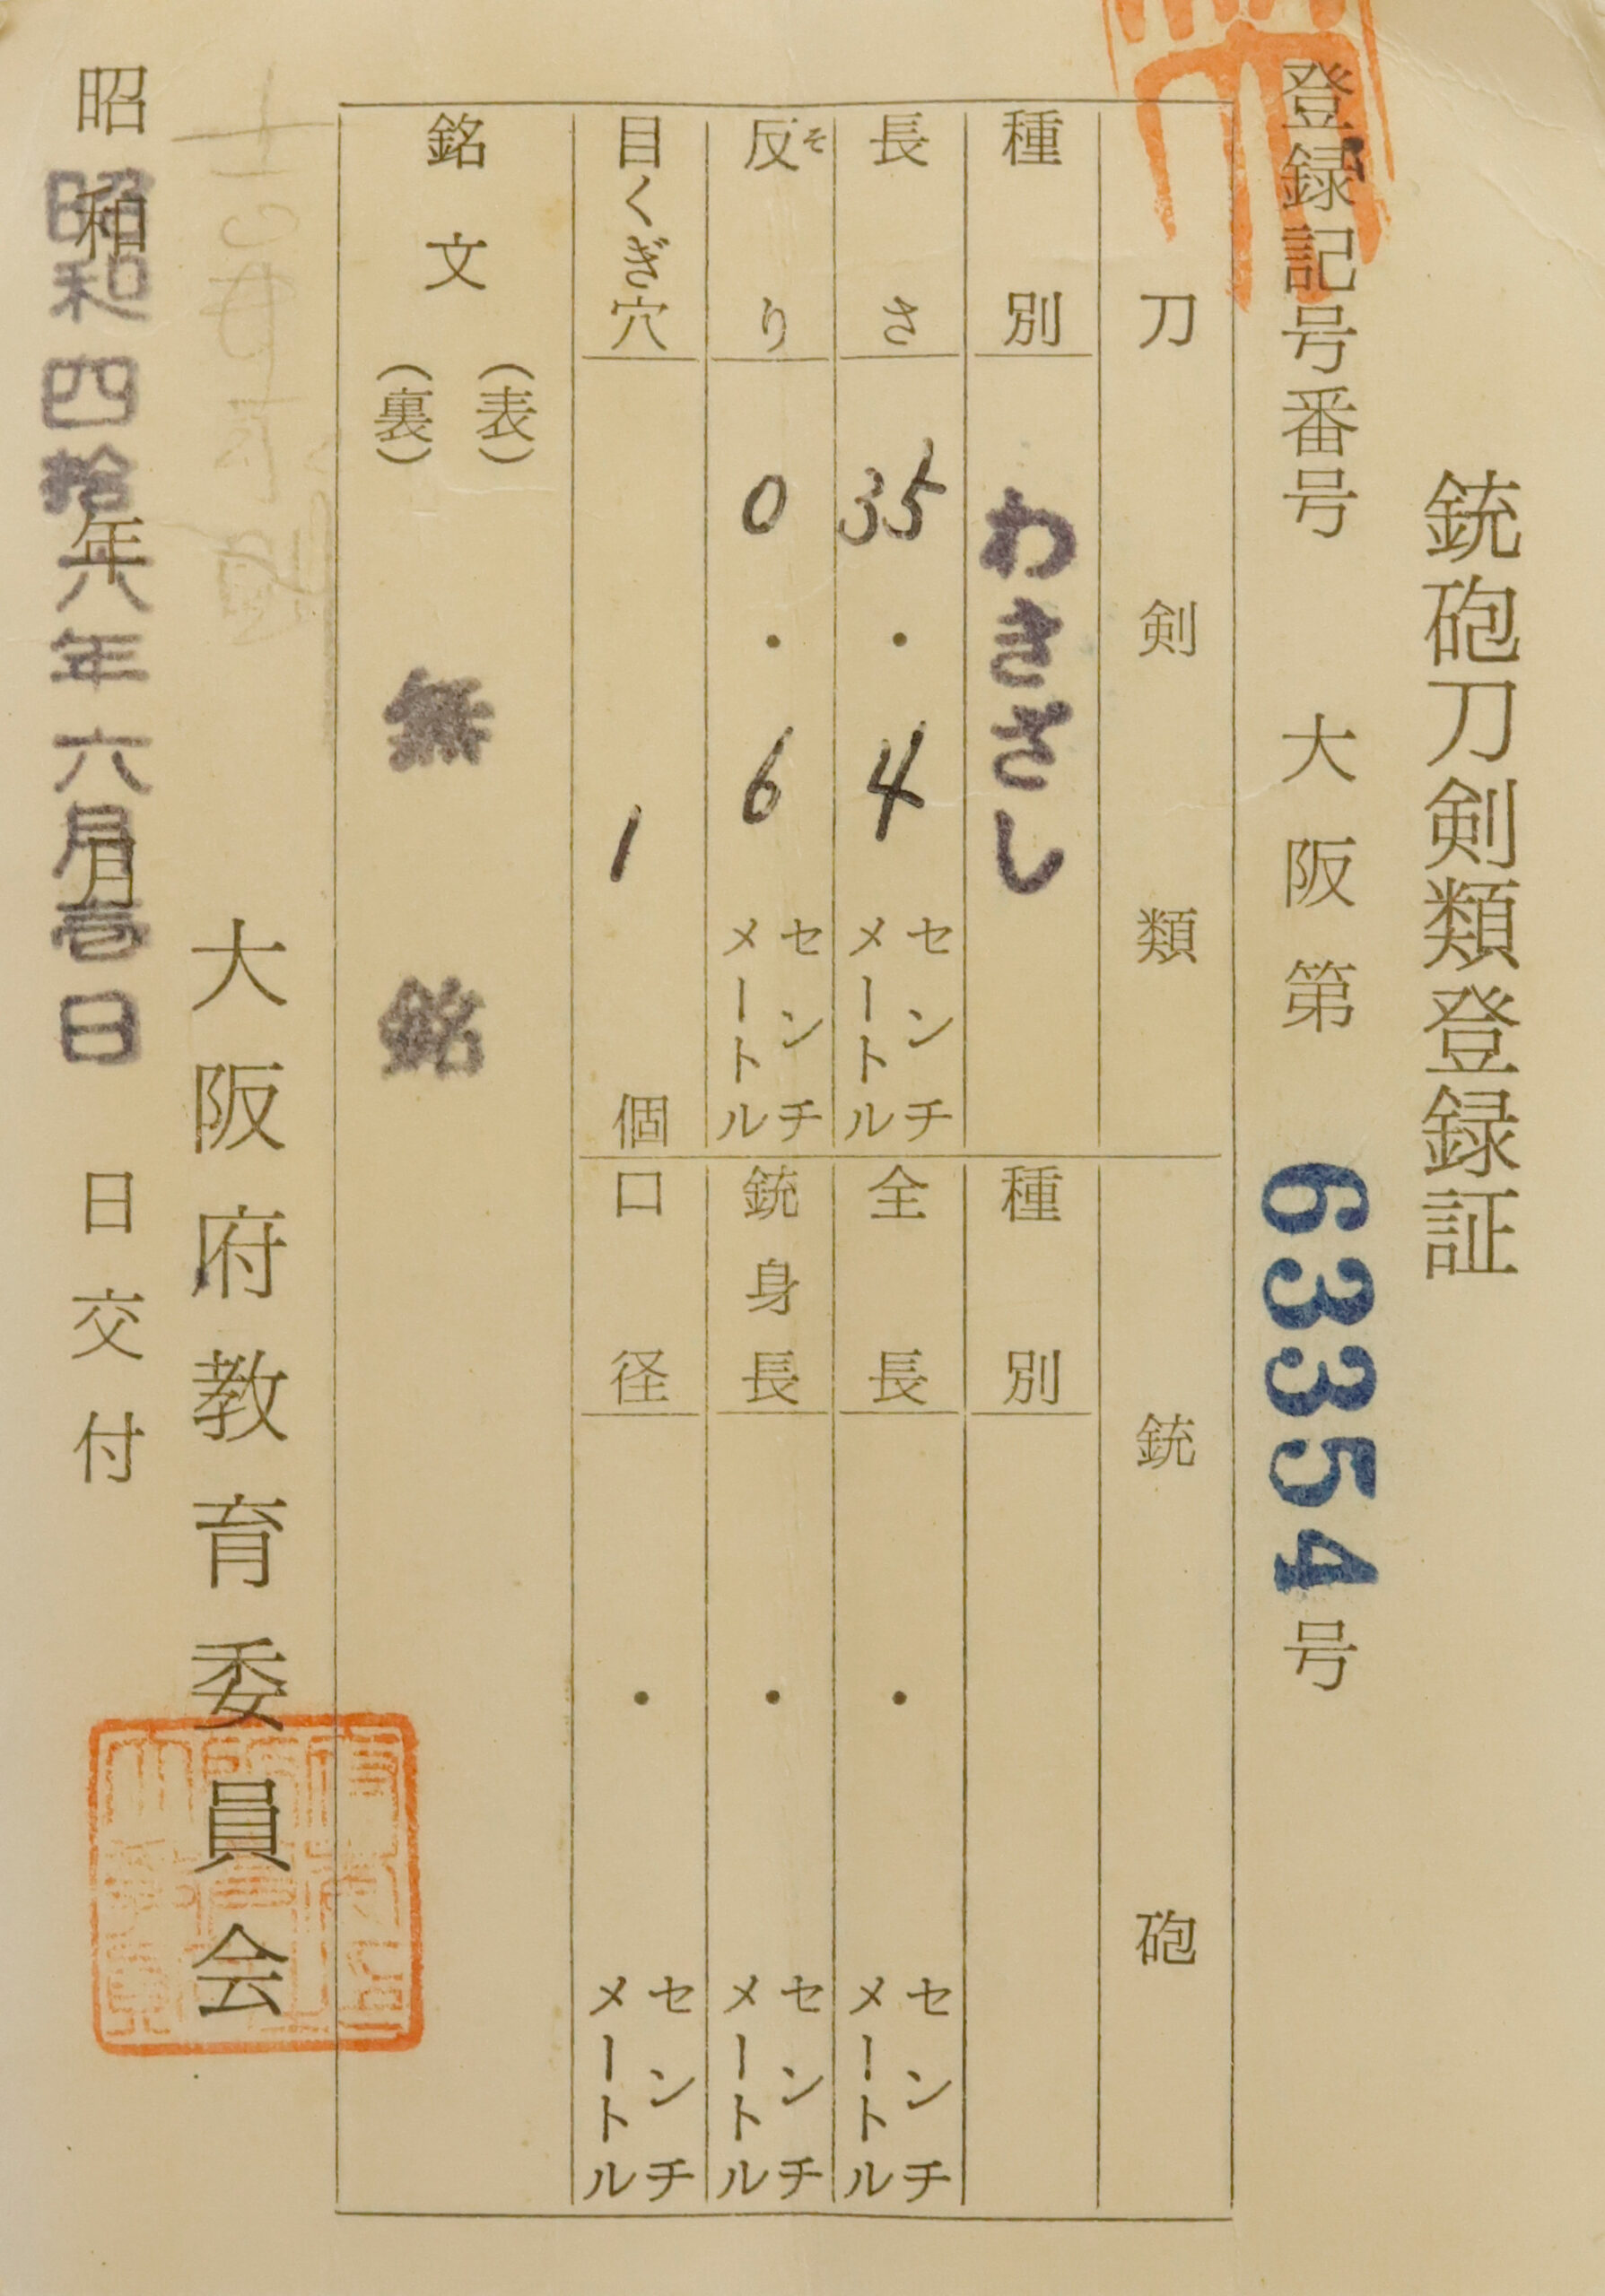 銃砲刀剣類登録証
登録記号番号 大阪第 63354 号
刀剣類
種別 わきざし
長さ 35.4 センチメートル
反り 0.6 センチメートル
そ
目くぎ穴 1 個
銃砲
種別
全長 . センチメートル
銃身長 . センチメートル
口径 . センチメートル
銘文 (表) (裏) 無銘
大阪府教育委員会
昭和 年 月 日交付
昭和四拾八年六月壱日